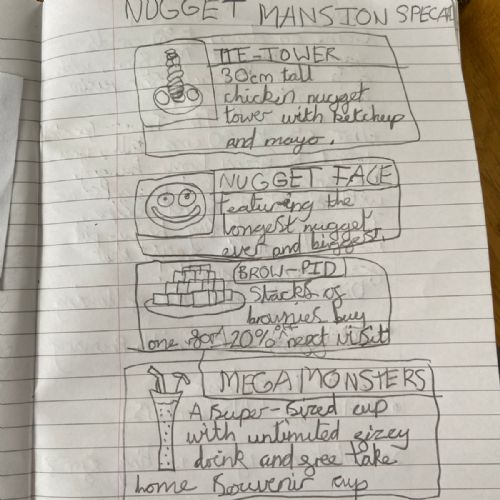 NUGGET MANSION SPECAL
THE-TOWER
30cm tall
chicken nugget
tower with ketchup
and mayo.
NUGGET FACE
featuring the
longest nugget
ever and biggest.
BROW-PID
Stacks of
brownies buy
one for 20% off next visit
MEGA MONSTERS
A super-sized cup
with unlimited fizzy
drink and free take
home souvenir cup